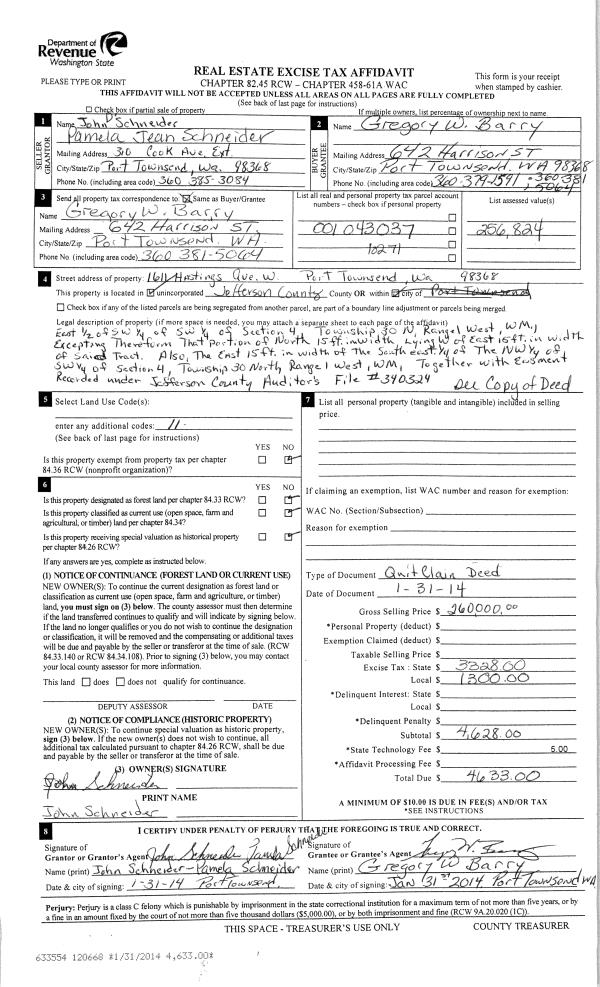 Department of
Revenue
Washington State
PLEASE TYPE OR PRINT
REAL ESTATE EXCISE TAX AFFIDAVIT
CHAPTER 82.45 RCW – CHAPTER 458-61A WAC
This form is your receipt
when stamped by cashier.
THIS AFFIDAVIT WILL NOT BE ACCEPTED UNLESS ALL AREAS ON ALL PAGES ARE FULLY COMPLETED
(See back of last page for instructions)
Check box if partial sale of property
If multiple owners, list percentage of ownership next to name.
1
SELLER
GRANTOR
Name John D Schneider
Pamela Jean Schneider
Mailing Address 310 Cook Ave, Ext.
City/State/Zip Port Townsend, Wa. 98368
Phone No. (including area code) 360 385-3084
2
BUYER
GRANTEE
Name Gregory W. Barry
Mailing Address 642 Harrison ST
City/State/Zip Port Townsend, WA 98368
Phone No. (including area code) 360-379-1591 ; 360-381
; 5064
3
Send all property tax correspondence to: Same as Buyer/Grantee
Name Gregory W. Barry
Mailing Address 642 Harrison ST.
City/State/Zip Port Townsend, WA.
Phone No. (including area code) 360 381-5064
List all real and personal property tax parcel account
numbers – check box if personal property
001 043037
10271
List assessed value(s)
256,824
4
Street address of property: 1611 Hastings Ave. W. Port Townsend, Wa 98368
This property is located in unincorporated Jefferson County County OR within city of Port Townsend
Check box if any of the listed parcels are being segregated from another parcel, are part of a boundary line adjustment or parcels being merged.
Legal description of property (if more space is needed, you may attach a separate sheet to each page of the affidavit)
East 1/2 of SW 1/4 of SW 1/4 of Section 4, Township 30 N, Range 1 West, WM.,
Excepting Therefrom That Portion of North 15 ft. in width Lying W of East 15 ft. in width
of Said Tract. Also, The East 15 ft. in width of The South east 1/4 of The NW 1/4 of
SW 1/4 of Section 4, Township 30 North, Range 1 West, WM, Together with Easment
Recorded under Jefferson County Auditor's File #340324 See Copy of Deed
5
Select Land Use Code(s):
enter any additional codes: 11
(See back of last page for instructions)
YES NO
Is this property exempt from property tax per chapter
84.36 RCW (nonprofit organization)?
6
YES NO
Is this property designated as forest land per chapter 84.33 RCW?
Is this property classified as current use (open space, farm and
agricultural, or timber) land per chapter 84.34?
Is this property receiving special valuation as historical property
per chapter 84.26 RCW?
If any answers are yes, complete as instructed below.
(1) NOTICE OF CONTINUANCE (FOREST LAND OR CURRENT USE)
NEW OWNER(S): To continue the current designation as forest land or
classification as current use (open space, farm and agriculture, or timber)
land, you must sign on (3) below. The county assessor must then determine
if the land transferred continues to qualify and will indicate by signing below.
If the land no longer qualifies or you do not wish to continue the designation
or classification, it will be removed and the compensating or additional taxes
will be due and payable by the seller or transferor at the time of sale. (RCW
84.33.140 or RCW 84.34.108). Prior to signing (3) below, you may contact
your local county assessor for more information.
This land does does not qualify for continuance.
DEPUTY ASSESSOR DATE
(2) NOTICE OF COMPLIANCE (HISTORIC PROPERTY)
NEW OWNER(S): To continue special valuation as historic property,
sign (3) below. If the new owner(s) does not wish to continue, all
additional tax calculated pursuant to chapter 84.26 RCW, shall be due
and payable by the seller or transferor at the time of sale.
(3) OWNER(S) SIGNATURE
John Schneider
PRINT NAME
John Schneider
7
List all personal property (tangible and intangible) included in selling
price.
If claiming an exemption, list WAC number and reason for exemption:
WAC No. (Section/Subsection)
Reason for exemption
Type of Document Quit Clain Deed
Date of Document 1-31-14
Gross Selling Price $ 260000.00
*Personal Property (deduct) $
Exemption Claimed (deduct) $
Taxable Selling Price $
Excise Tax : State $ 3328.00
Local $ 1300.00
*Delinquent Interest: State $
Local $
*Delinquent Penalty $
Subtotal $ 4,628.00
*State Technology Fee $ 5.00
*Affidavit Processing Fee $
Total Due $ 4633.00
A MINIMUM OF $10.00 IS DUE IN FEE(S) AND/OR TAX
*SEE INSTRUCTIONS
8
I CERTIFY UNDER PENALTY OF PERJURY THAT THE FOREGOING IS TRUE AND CORRECT.
Signature of
Grantor or Grantor's Agent John Schneider Pamela Schneider
Name (print) John Schneider - Pamela Schneider
Date & city of signing: 1-31-14 Port Townsend.
Signature of
Grantee or Grantee's Agent
Name (print) Gregory W Barry
Date & city of signing: Jan 31st 2014 Port Townsend WA
Perjury: Perjury is a class C felony which is punishable by imprisonment in the state correctional institution for a maximum term of not more than five years, or by
a fine in an amount fixed by the court of not more than five thousand dollars ($5,000.00), or by both imprisonment and fine (RCW 9A.20.020 (1C)).
THIS SPACE - TREASURER'S USE ONLY
COUNTY TREASURER
633554 120668 *1/31/2014 4,633.00*